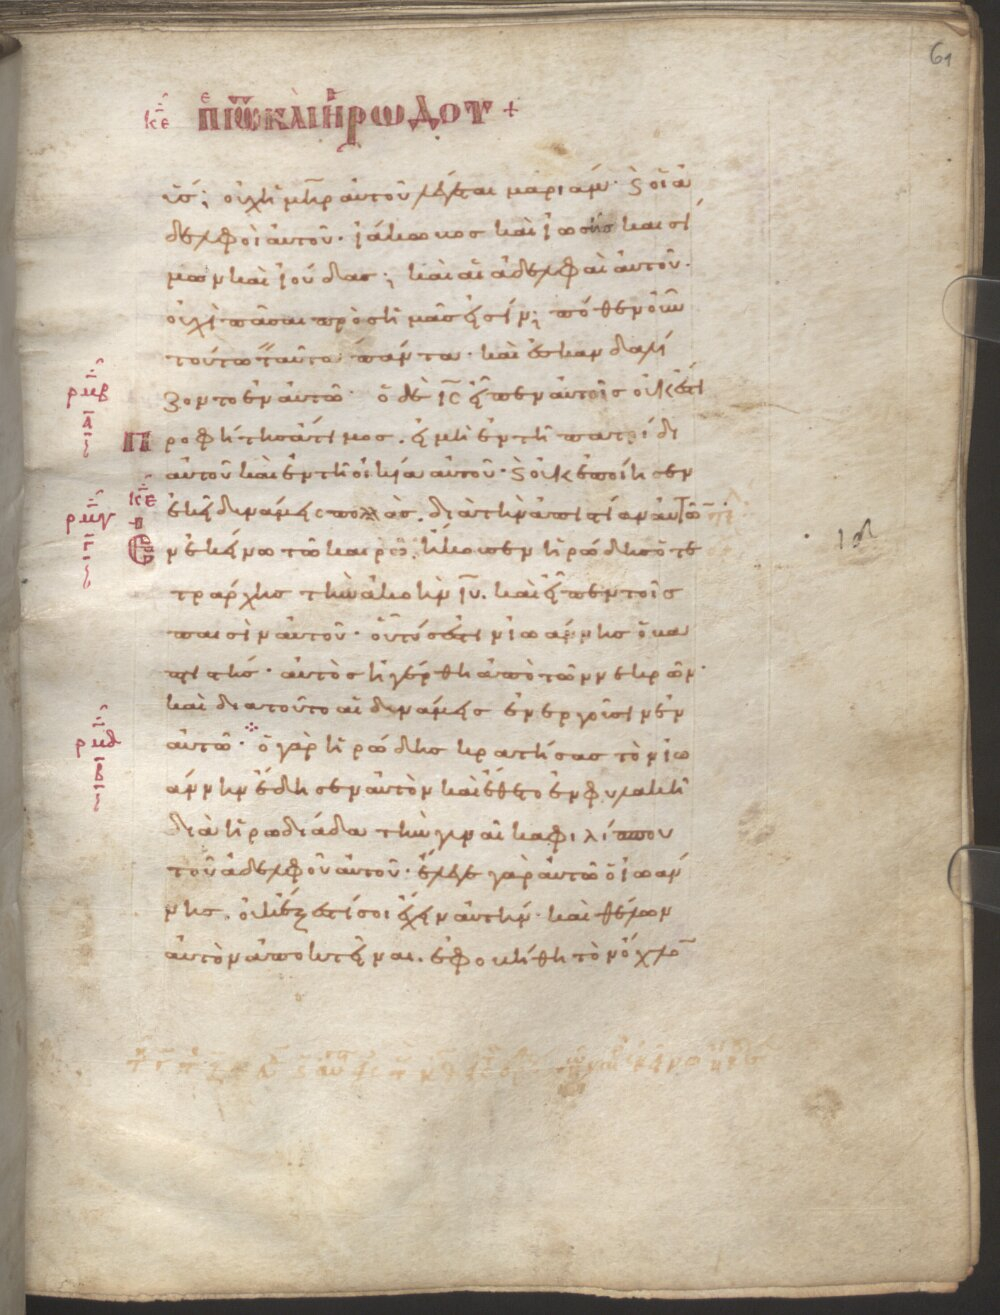 61
κε πιω καὶ ηρωδου +
υσ; οὐχὶ μηρ αὐτοῦ λέγεται μαριάμ· ϗ οἱ ἀ
δελφοὶ αὐτοῦ· ἰάκωβος καὶ ἰωσῆς καὶ σί
μων καὶ ἰούδας; καὶ αἱ ἀδελφαὶ αὐτοῦ·
οὐχὶ πᾶσαι πρὸς ἡμᾶς εἰσίν; πόθεν οὖν
τούτω ταῦτα πάντα· καὶ ἐσκανδαλί
ρμβ ζοντο ἐν αὐτῶ· ὁ δὲ ις εἶπεν αὐτοῖς οὐκ ἔστι
α προφήτης ἄτιμος. εἰ μὴ ἐν τῆ πατρίδι
αὐτοῦ καὶ ἐν τῆ οἰκία αὐτοῦ· ϗ οὐκ ἐποίησεν
κε
ρμγ ἐκεῖ δυνάμεις πολλὰς. διὰ τὴν ἀπιστίαν αὐτῶ
γ Ἐν ἐκείνω τῶ καιρῶ. ἤκουσεν ἡρώδης ὁ τε
τράρχης τὴν ἀκοὴν ιυ. καὶ εἶπεν τοῖς
παισὶν αὐτοῦ· οὗτός ἐστιν ἰωάννης ὁ βα
πτιστής· αὐτὸς ἠγέρθη ἀπὸ τῶν νεκρῶν·
καὶ διατοῦτο αἱ δυνάμεις ἐνεργοῦσιν ἐν
ρμδ αὐτῶ· ὁ γὰρ ἡρώδης κρατήσας τὸν ἰω
β άννην ἔδησεν αὐτὸν καὶ ἔθετο ἐν φυλακῆ
διὰ ἡρωδιάδα τὴν γυναῖκα φιλίππου
τοῦ ἀδελφοῦ αὐτοῦ· ἔλεγε γὰρ αὐτῶ ὁ ἰωάν
νης. οὐκ ἔξεστί σοι ἔχειν αὐτήν· καὶ θέλων
αὐτὸν ἀποκτεῖναι. ἐφοβήθη τὸν ὄχλο